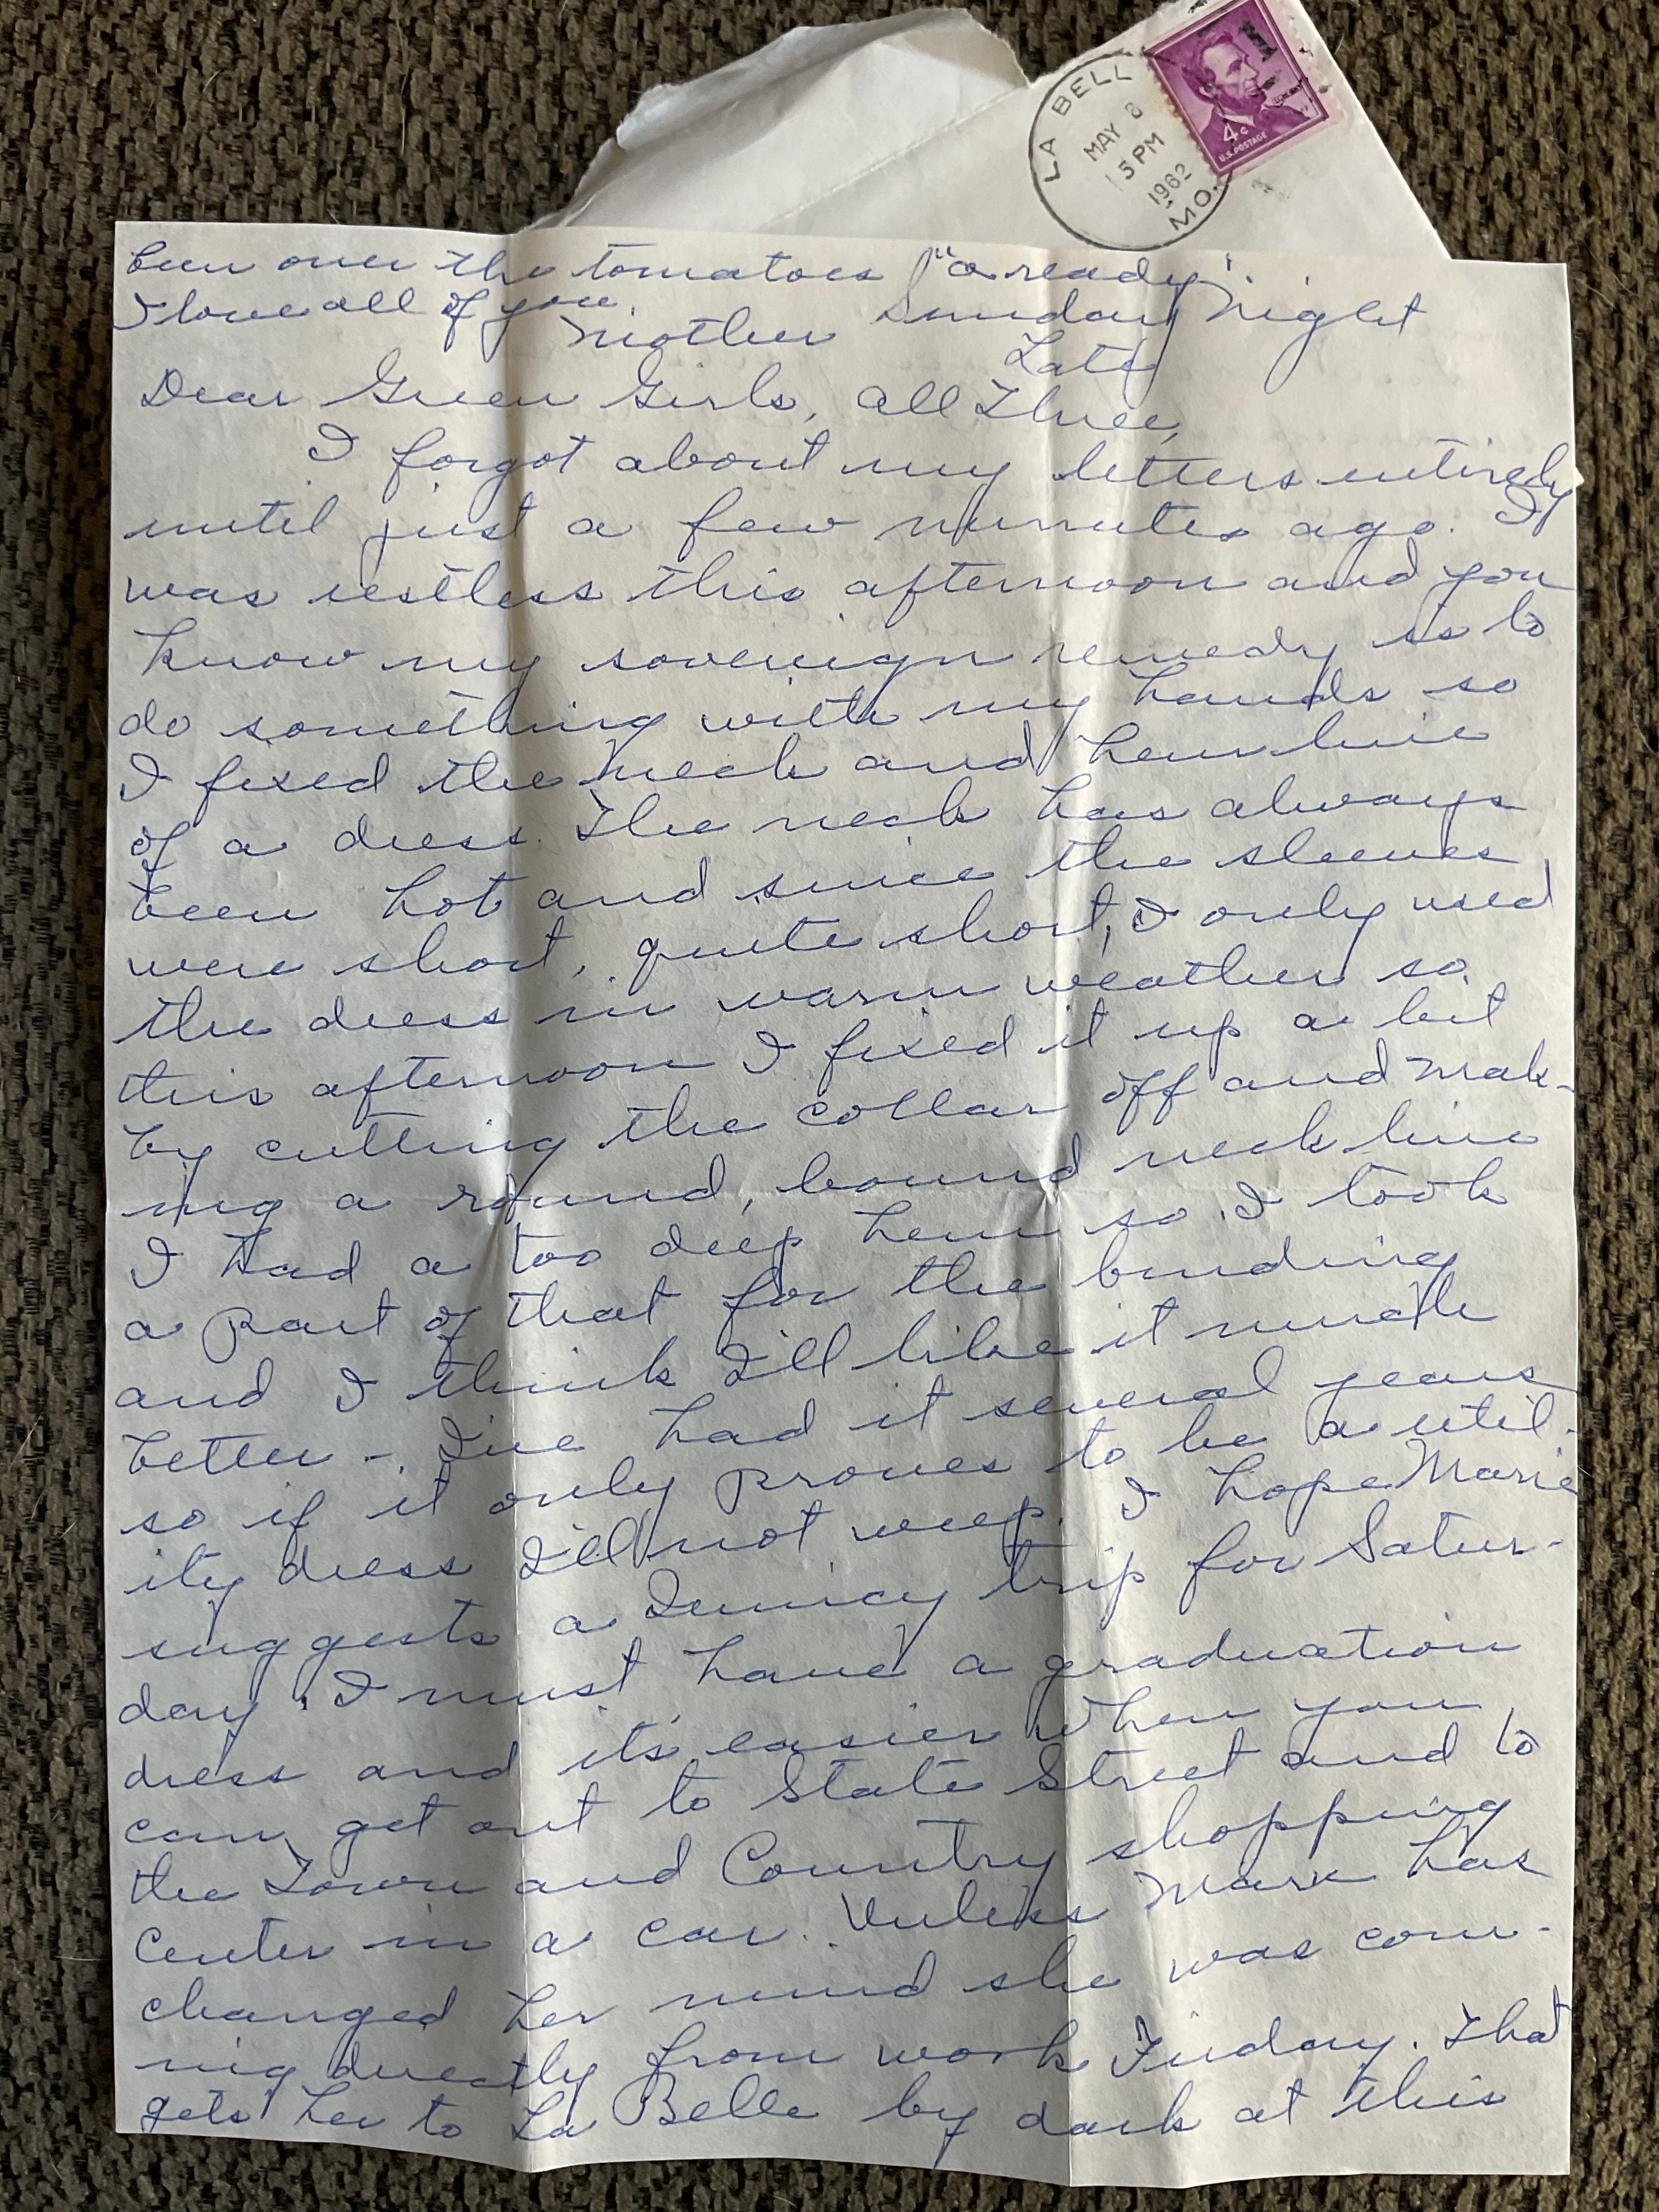 LA BELL
MAY 8
5 PM
1962
MO.
4¢
U.S. POSTAGE
been over the tomatoes "a ready"
I love all of you
Mother
Sunday Night
Late
Dear Green Girls, all Three,
I forgot about my letters entirely
until just a few minutes ago. I
was restless this afternoon and you
know my sovereign remedy is to
do something with my hands so
I fixed the neck and hem line
of a dress. The neck has always
been hot and since the sleeves
were short, quite short, I only used
the dress in warm weather so
this afternoon I fixed it up a bit
by cutting the collar off and mak-
ing a round, bound neck line
I had a too deep hem so I took
a part of that for the binding
and I think I'll like it much
better - I've had it several years
so if it only proves to be a util-
ity dress I'll not weep. I hope Marie
suggests a Quincy trip for Satur-
day. I must have a graduation
dress and it's easier when you
can get out to State Street and to
the Town and Country shopping
Center in a car. Unless Mark has
changed her mind she was com-
ing directly from work Friday. That
gets her to La Belle by dark at this